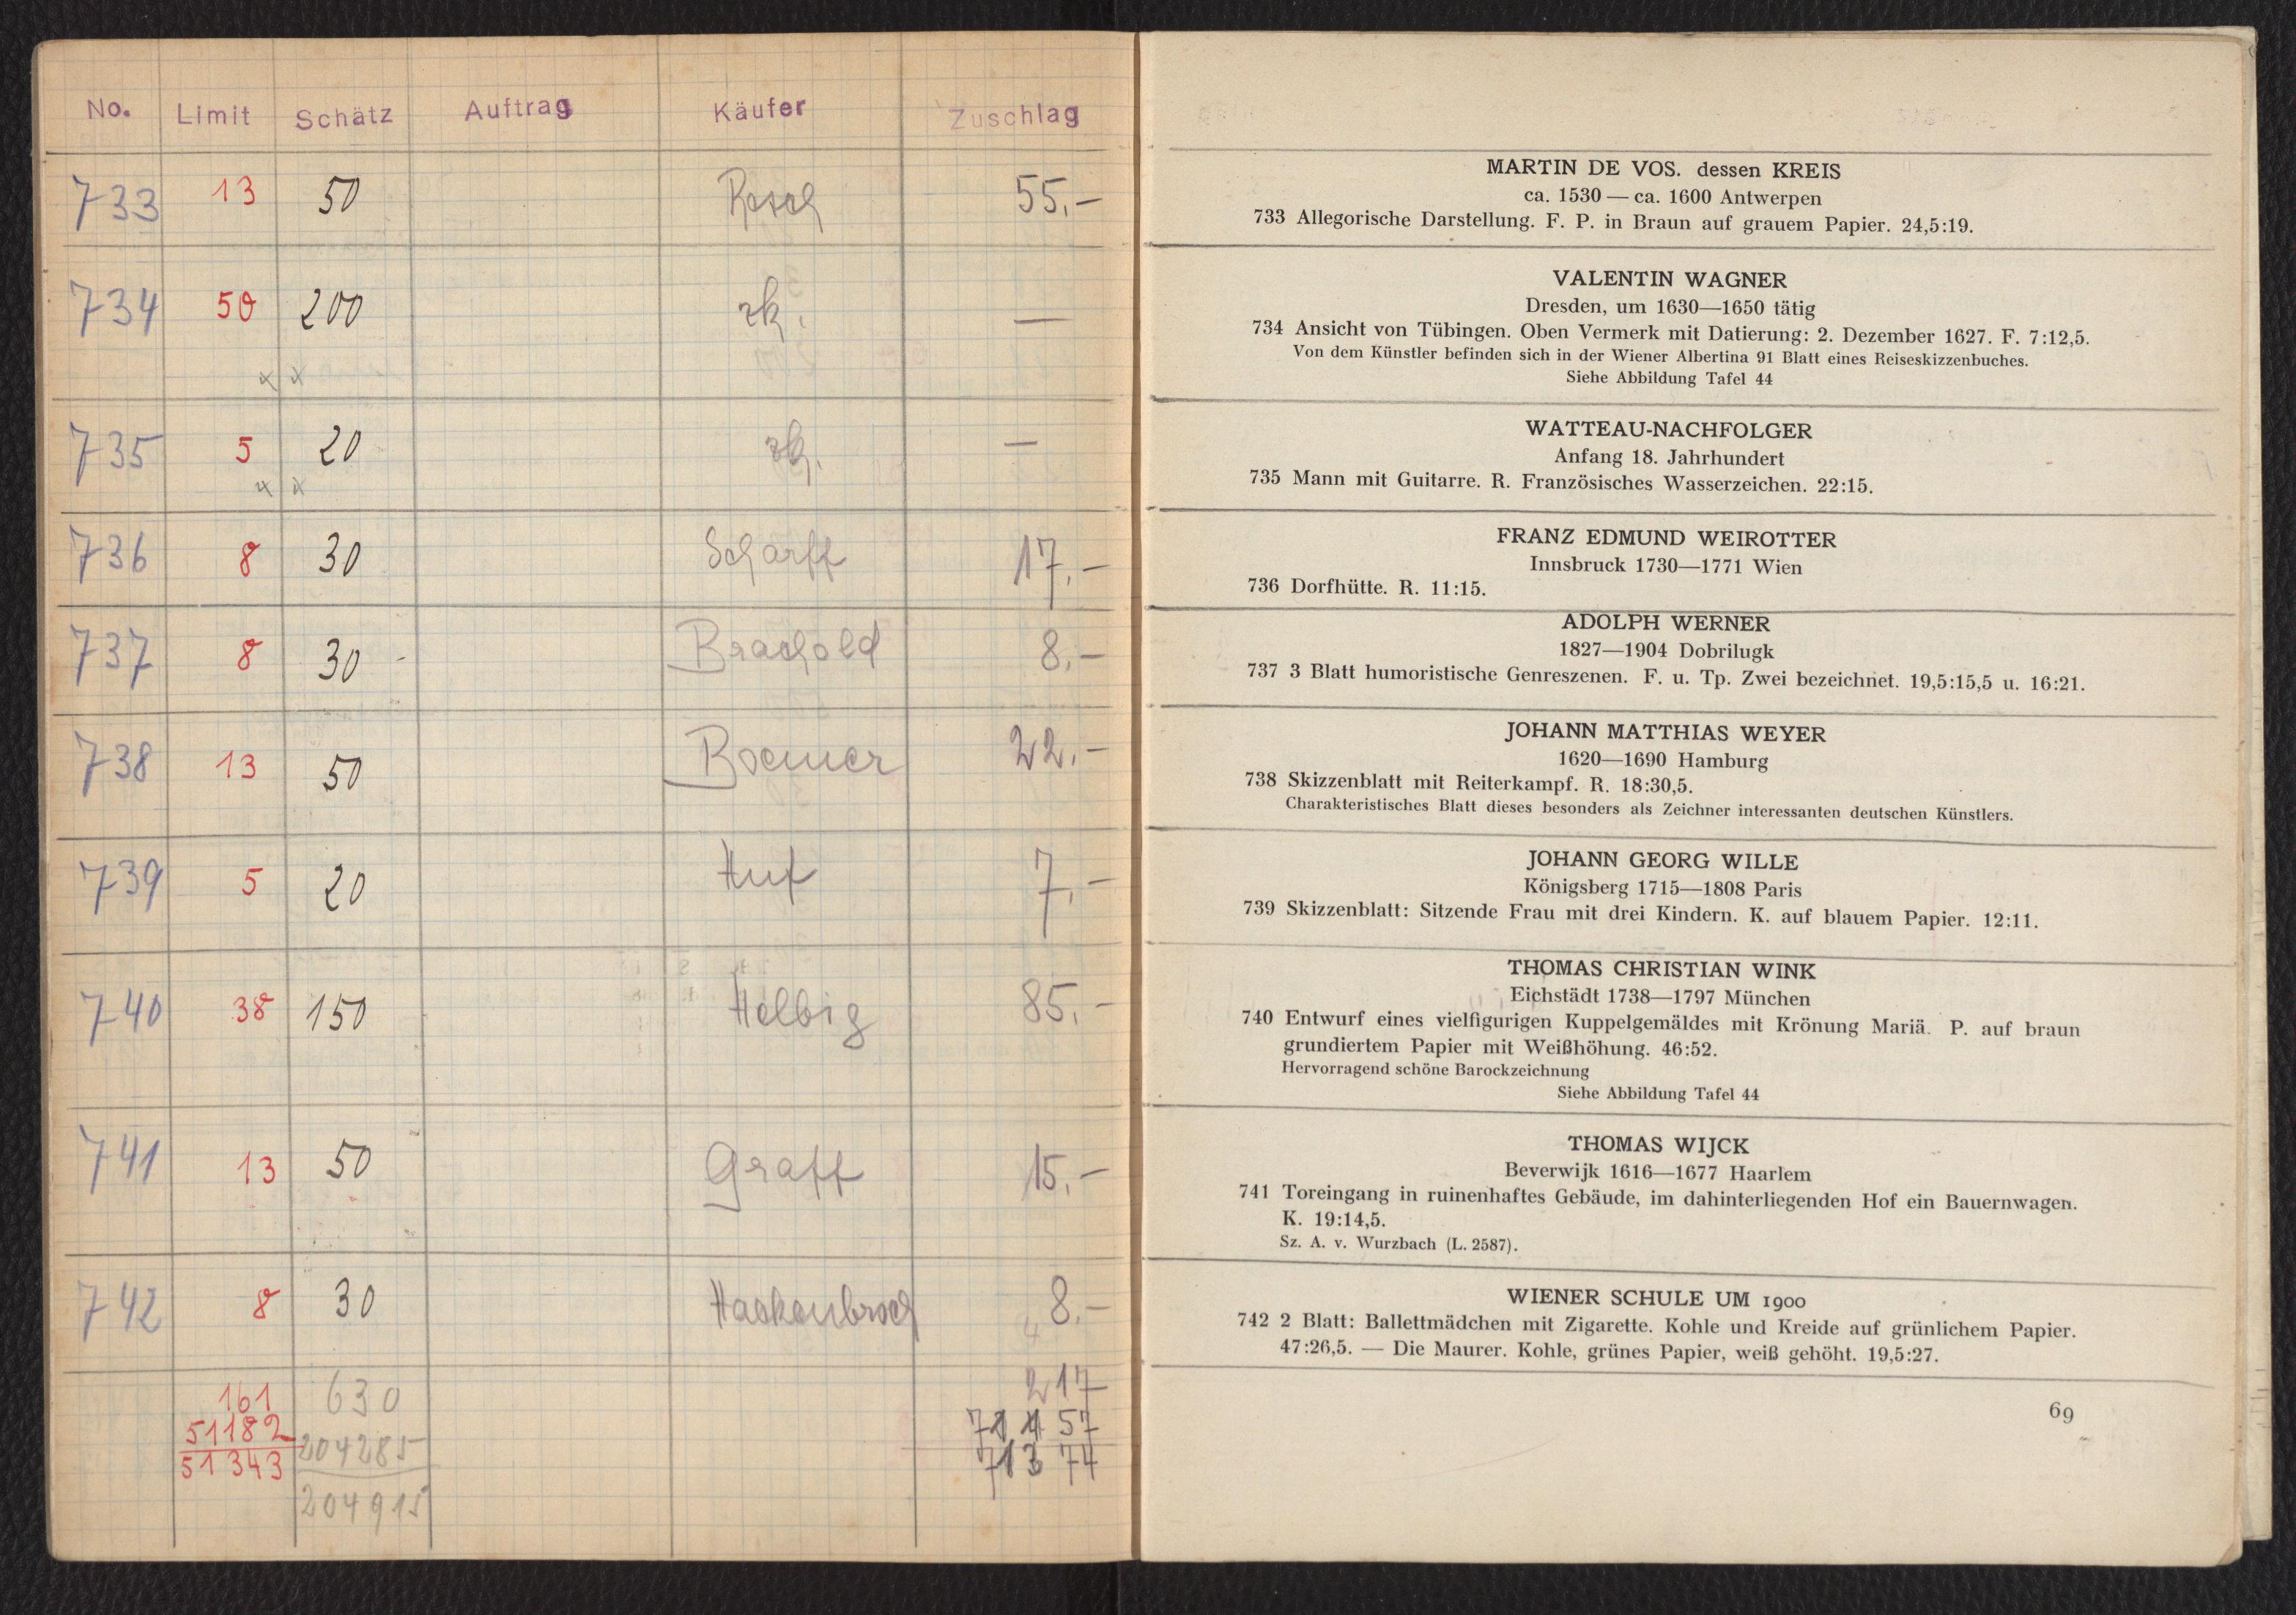 No. Limit Schätz Auftrag Käufer Zuschlag
733 13 50 Rosch 55.-
734 50 200 zk. —
x x
735 5 20 zk. —
x x
736 8 30 Scharff 17.-
737 8 30 - Brachold 8.-
738 13 50 Boerner 22.-
739 5 20 Huf 7.-
740 38 150 Helbig 85.-
741 13 50 Graff 15.-
742 8 30 Hackenbroch 8.-
161 630 217
51182 204285 71157
51343 204915 71374
MARTIN DE VOS. dessen KREIS
ca. 1530 — ca. 1600 Antwerpen
733 Allegorische Darstellung. F. P. in Braun auf grauem Papier. 24,5:19.
VALENTIN WAGNER
Dresden, um 1630—1650 tätig
734 Ansicht von Tübingen. Oben Vermerk mit Datierung: 2. Dezember 1627. F. 7:12,5.
Von dem Künstler befinden sich in der Wiener Albertina 91 Blatt eines Reiseskizzenbuches.
Siehe Abbildung Tafel 44
WATTEAU-NACHFOLGER
Anfang 18. Jahrhundert
735 Mann mit Guitarre. R. Französisches Wasserzeichen. 22:15.
FRANZ EDMUND WEIROTTER
Innsbruck 1730—1771 Wien
736 Dorfhütte. R. 11:15.
ADOLPH WERNER
1827—1904 Dobrilugk
737 3 Blatt humoristische Genreszenen. F. u. Tp. Zwei bezeichnet. 19,5:15,5 u. 16:21.
JOHANN MATTHIAS WEYER
1620—1690 Hamburg
738 Skizzenblatt mit Reiterkampf. R. 18:30,5.
Charakteristisches Blatt dieses besonders als Zeichner interessanten deutschen Künstlers.
JOHANN GEORG WILLE
Königsberg 1715—1808 Paris
739 Skizzenblatt: Sitzende Frau mit drei Kindern. K. auf blauem Papier. 12:11.
THOMAS CHRISTIAN WINK
Eichstädt 1738—1797 München
740 Entwurf eines vielfigurigen Kuppelgemäldes mit Krönung Mariä. P. auf braun
grundiertem Papier mit Weißhöhung. 46:52.
Hervorragend schöne Barockzeichnung
Siehe Abbildung Tafel 44
THOMAS WIJCK
Beverwijk 1616—1677 Haarlem
741 Toreingang in ruinenhaftes Gebäude, im dahinterliegenden Hof ein Bauernwagen.
K. 19:14,5.
Sz. A. v. Wurzbach (L. 2587).
WIENER SCHULE UM 1900
742 2 Blatt: Ballettmädchen mit Zigarette. Kohle und Kreide auf grünlichem Papier.
47:26,5. — Die Maurer. Kohle, grünes Papier, weiß gehöht. 19,5:27.
69